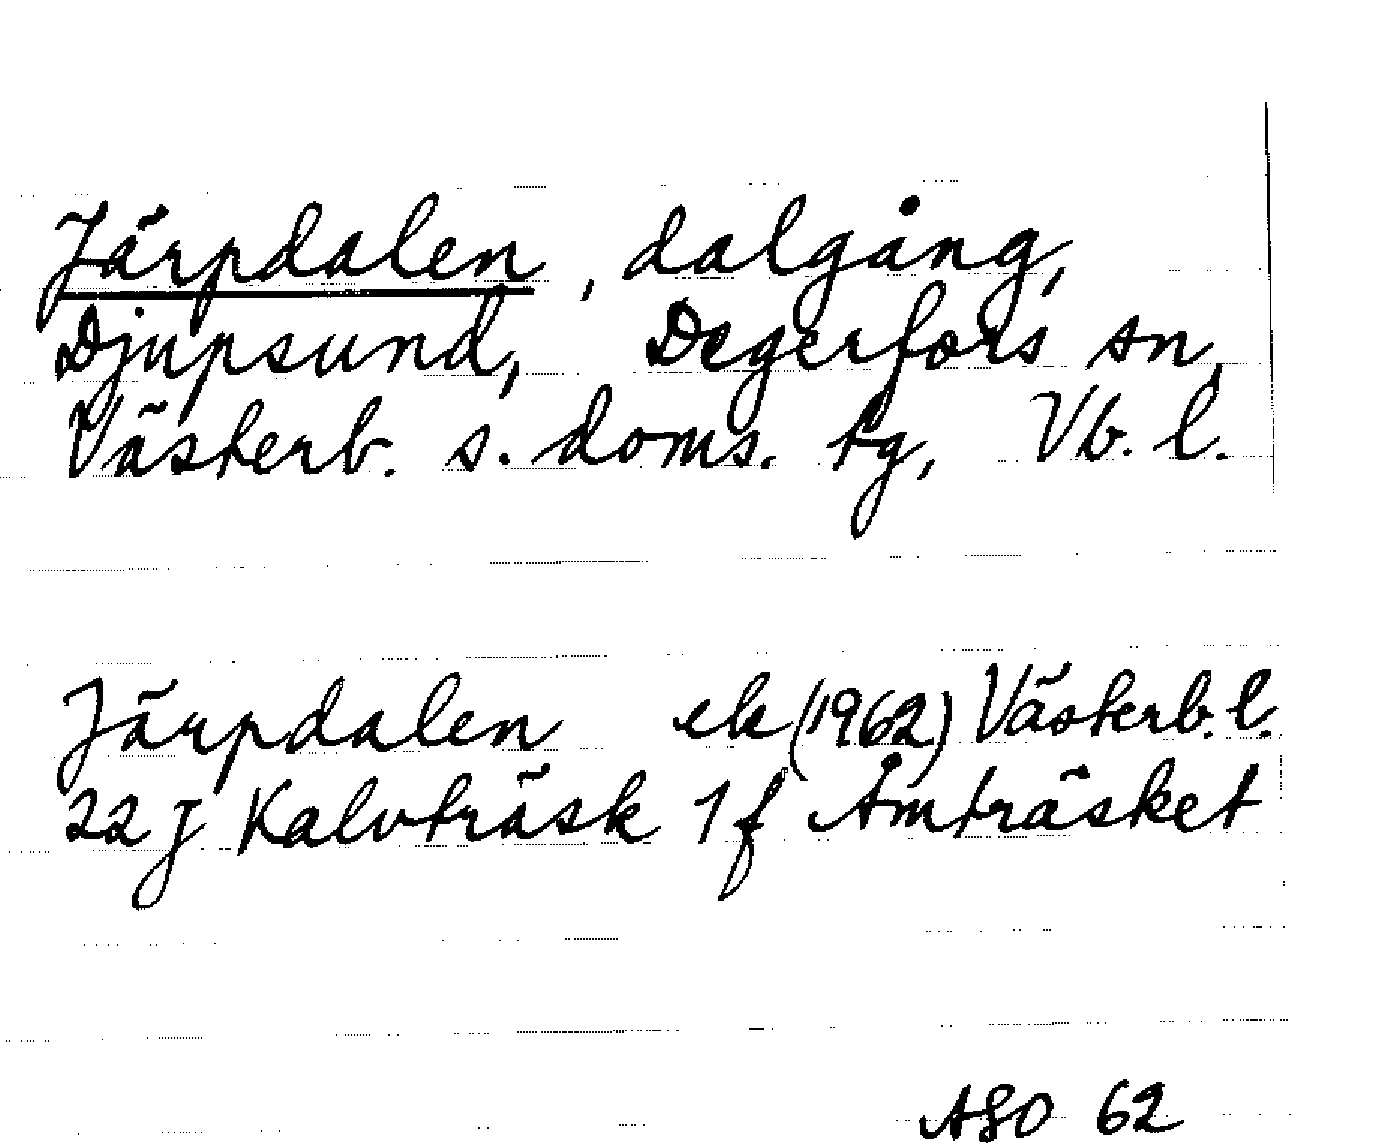 Järpdalen, dalgång,
Djupsund, Degerfors sn,
Västerb. s. doms. tg, Vb. l.
Järpdalen ek (1962) Västerb. l.
22 J Kalvträsk 1 f Åmträsket
ASO 62